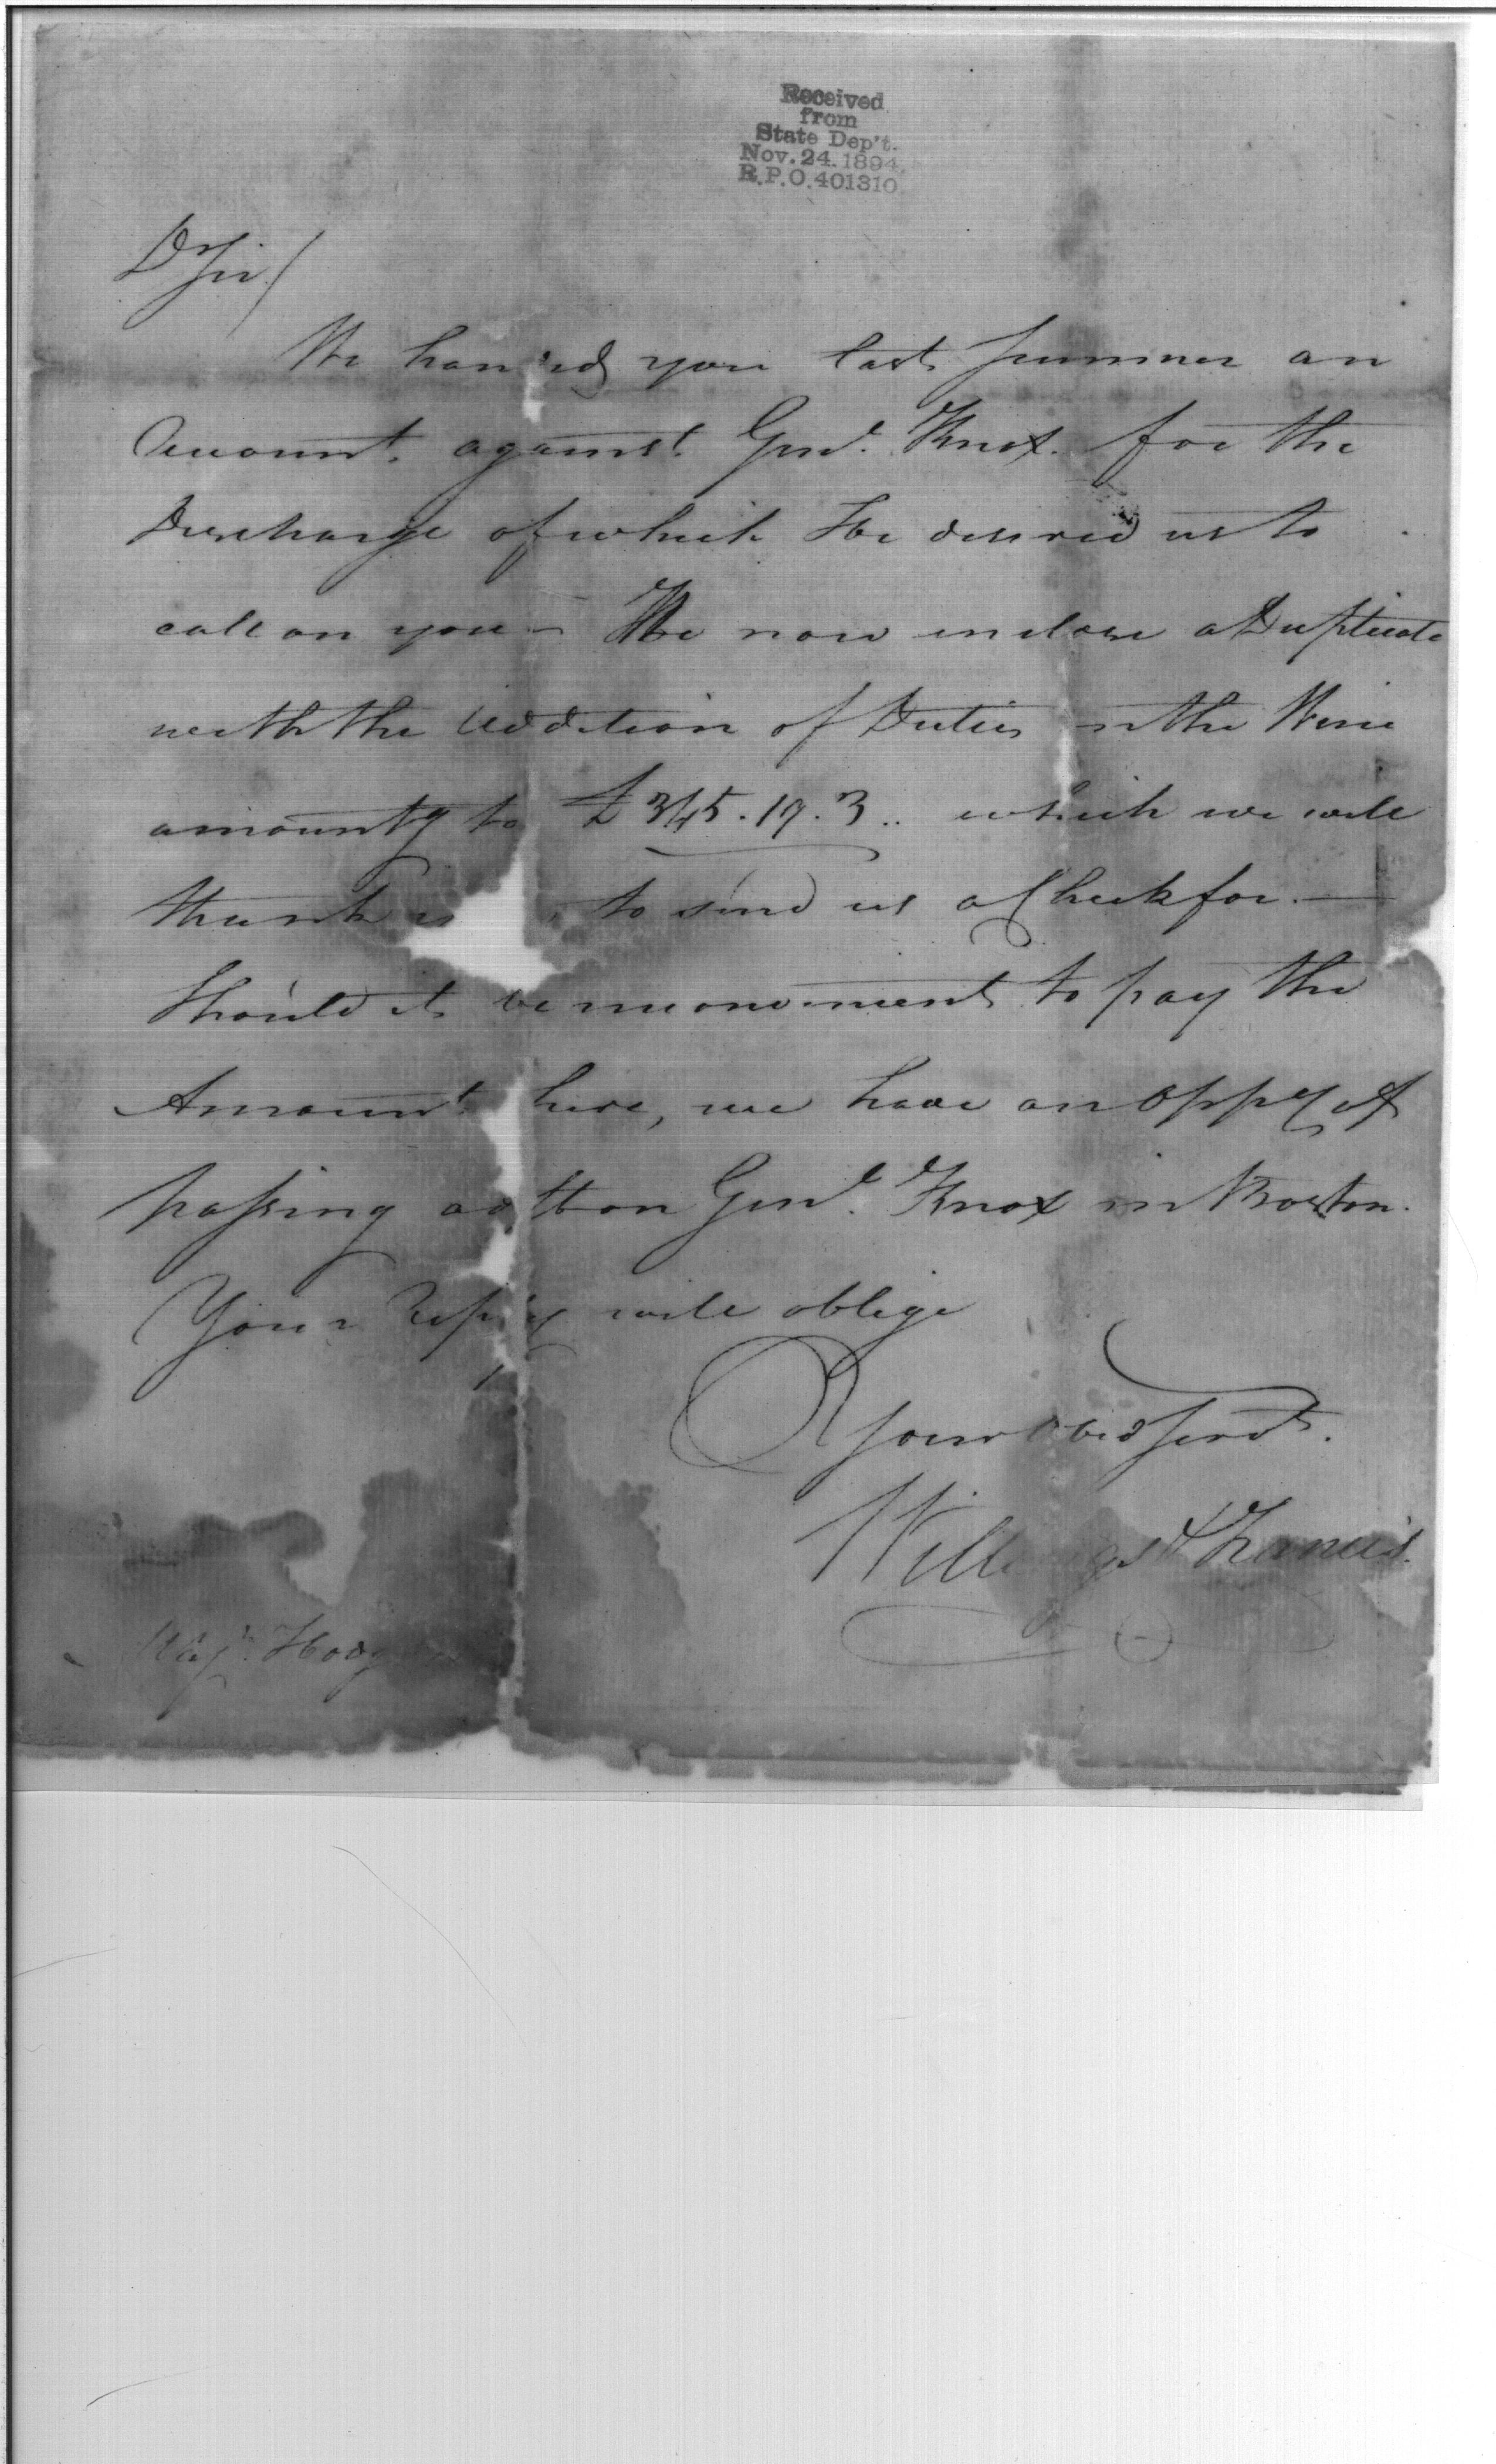 Received
from
State Dep't.
Nov. 24. 1894.
R.P.O. 401310
Dr Sir/
We handed you last Summer an
Account against Genl. Knox. for the
Discharge of which He desired us to
call on you – We now inclose a Duplicate
with the Addition of Duties on the Wine
amountg to £345.19.3.. which we will
thank to send us a Check for. —
Should it be inconvenient to pay the
Amount here, we have an oppy of
passing a dft on Genl. Knox in Boston.
Your Reply will oblige
Your obed Servts.
Willings & Francis
Majr. Hodg